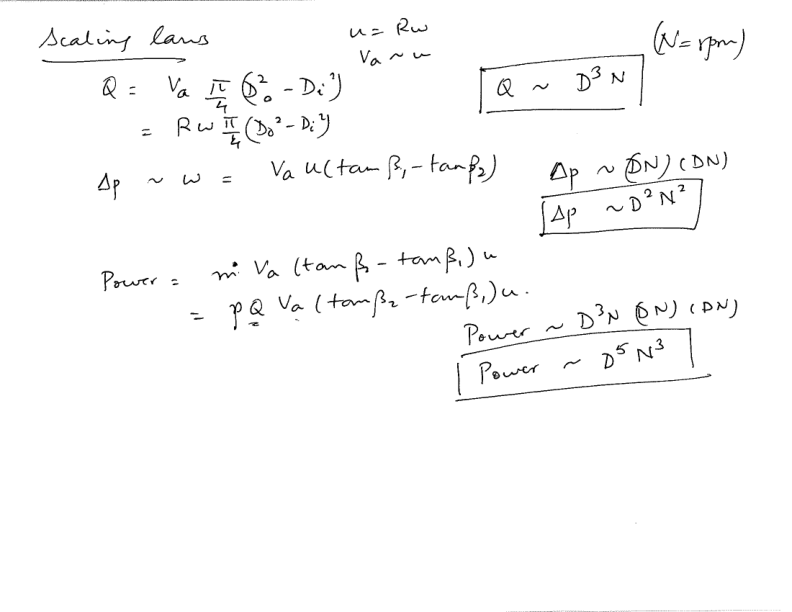 Scaling laws
u = Rω
Va ~ u
(N = rpm)
Q = Va π/4 (Do² - Di²)
= Rω π/4 (Do² - Di²)
Q ~ D³ N
Δp ~ w = Va u (tan β1 - tan β2)
Δp ~ (DN) (DN)
Δp ~ D² N²
Power = ṁ Va (tan β2 - tan β1) u
= ρQ Va (tan β2 - tan β1) u.
Power ~ D³N (DN) (DN)
Power ~ D⁵ N³